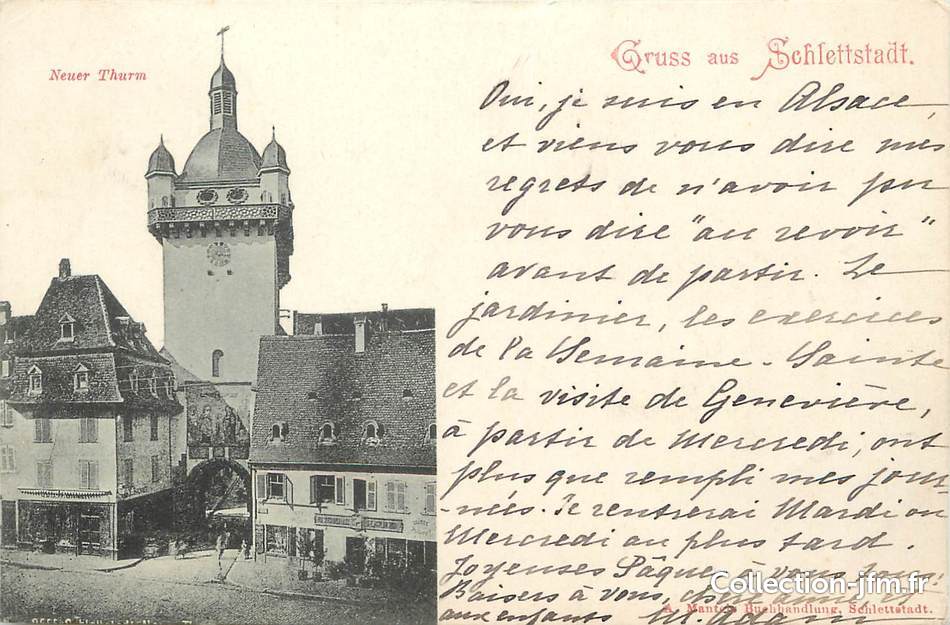 Neuer Thurm
Gruss aus Schlettstadt.
Oui, je suis en Alsace,
et viens vous dire mes
regrets de n'avoir pu
vous dire "au revoir"
avant de partir. Le
jardinier, les exercices
de la Semaine-Sainte
et la visite de Geneviève,
à partir de Mercredi, ont
plus que rempli mes jour-
-nées. Je rentrerai Mardi ou
Mercredi au plus tard.
Joyeuses Pâques à vous tous.
Baisers à vous, et
aux enfants M. Adam
A. Mantels Buchhandlung, Schlettstadt.
Collection-jfm.fr